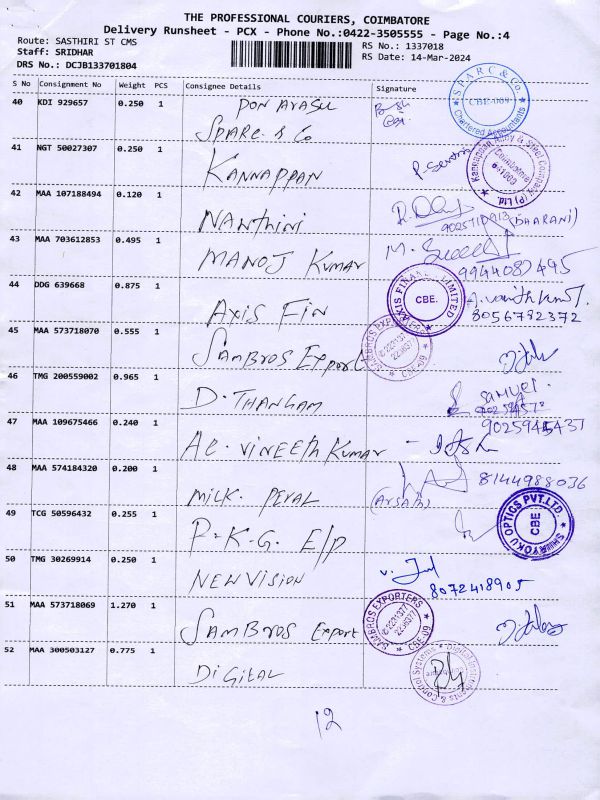 THE PROFESSIONAL COURIERS, COIMBATORE
Delivery Runsheet - PCX - Phone No.:0422-3505555 - Page No.:4
Route: SASTHIRI ST CMS
RS No.: 1337018
Staff: SRIDHAR
RS Date: 14-Mar-2024
DRS No.: DCJB133701804
S No Consignment No Weight PCS Consignee Details Signature
40 KDI 929657 0.250 1 PON ARASU
SPARC & Co
SPARC & Co
CBE-009
Chartered Accountants
41 NGT 50027307 0.250 1 KANNAPPAN
Kannappan Alloy & Steel Company (P) Ltd.
Coimbatore
42 MAA 107188494 0.120 1 NANTHINI
(DHARANI)
43 MAA 703612853 0.495 1 MANOJ KUMAR
9944087495
44 DDG 639668 0.875 1 AXIS FIN
AXIS FINANCE LIMITED
CBE.
8056782372
45 MAA 573718070 0.555 1 SAMBROS Export
SAMBROS EXPORTERS
CBE-09
46 TMG 200559002 0.965 1 D. THANGAM
47 MAA 109675466 0.240 1 AC. VINEETH KUMAR
9025945437
48 MAA 574184320 0.200 1 MILK. PERAL
8144988036
49 TCG 50596432 0.255 1 P. K. G. E/P
OPTICS PVT.LTD.
CBE
50 TMG 30269914 0.250 1 NEW VISION
8072418905
51 MAA 573718069 1.270 1 SAMBROS Export
SAMBROS EXPORTERS
CBE-09
52 MAA 300503127 0.775 1 DIGITAL
Digital Instruments & Control Systems
12